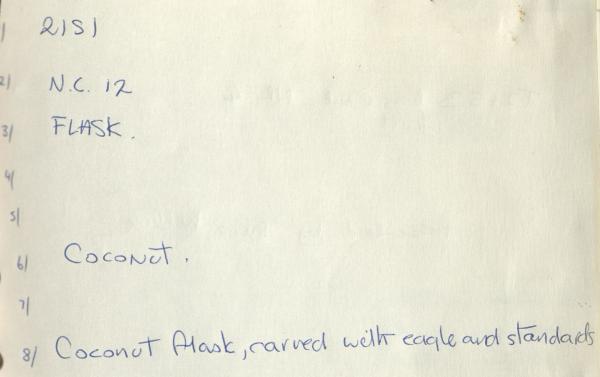 1/ 2151
2/ N.C. 12
3/ FLASK.
4/
5/
6/ COCONUT.
7/
8/ Coconut flask, carved with eagle and standards